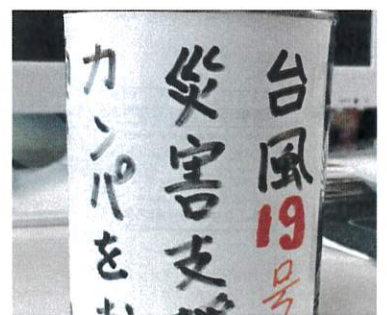 台風19号
災害支援
カンパをお